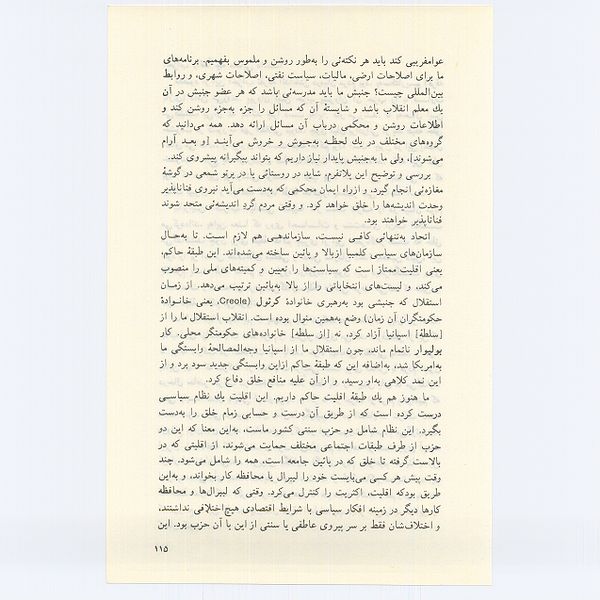 عوامفریبی کند باید هر نکته‌ئی را به‌طور روشن و ملموس بفهمیم. برنامه‌های
ما برای اصلاحات ارضی، مالیات، سیاست نفتی، اصلاحات شهری، و روابط
بین‌المللی چیست؟ جنبش ما باید مدرسه‌ئی باشد که هر عضو جنبش در آن
یك معلم انقلاب باشد و شایستهٔ آن که مسائل را جزء به‌جزء روشن کند و
اطلاعات روشن و محکمی درباب آن مسائل ارائه دهد. همه می‌دانید که
گروه‌های مختلف در یك لحظـه به‌جـوش و خروش می‌آینـد [و بعـد آرام
می‌شوند]، ولی ما به‌جنبش پایدار نیاز داریم که بتواند پیگیرانه پیشروی کند.
بررسی و توضیح این پلاتفرم، شاید در روستائی یا در پرتو شمعی در گوشهٔ
مغازه‌ئی انجام گیرد، و ازراه ایمان محکمی که به‌دست می‌آید نیروی فناناپذیر
وحدت اندیشه‌ها را خلق خواهد کرد. و وقتی مردم گردِ اندیشه‌ئی متحد شوند
فناناپذیر خواهند بود.
اتحاد به‌تنهائی کافـی نیسـت، سازماندهـی هم لازم اسـت. تا به‌حـال
سازمان‌های سیاسی کلمبیا ازبالا و پائین ساخته می‌شده‌اند. این طبقهٔ حاکم،
یعنی اقلیت ممتاز است که سیاست‌ها را تعیین و کمیته‌های ملی را منصوب
می‌کند، و لیست‌های انتخاباتی را از بالا به‌پائین ترتیب می‌دهد. از زمـان
استقلال که جنبشی بود به‌رهبری خانوادهٔ کرئول (Creole، یعنی خانـوادهٔ
حکومتگران آن زمان) وضع به‌همین منوال بوده است. انقلاب استقلال ما را از
[سلطهٔ] اسپانیا آزاد کرد، نه [از سلطه] خانواده‌های حکومتگر محلی. کار
بولیوار ناتمام ماند، چون استقلال ما از اسپانیا وجه‌المصالحهٔ وابستگی ما
به‌امریکا شد، به‌اضافه این که طبقهٔ حاکم ازاین وابستگی جدید سود برد و از
این نمد کلاهی به‌او رسید، و از آن علیه منافع خلق دفاع کرد.
ما هنوز هم یك طبقهٔ اقلیت حاکم داریم. این اقلیت یك نظام سیاسـی
درست کرده است که از طریق آن درست و حسابی زمام خلق را به‌دست
بگیرد. این نظام شامل دو حزب سنتی کشور ماست، به‌این معنا که این دو
حزب از طرف طبقات اجتماعی مختلف حمایت می‌شوند، از اقلیتی که در
بالاست گرفته تا خلق که در پائین جامعه است، همه را شامل می‌شود. چند
وقت پیش هر کسی می‌بایست خود را لیبرال یا محافظه کار بخواند، و به‌این
طریق بودکه اقلیت، اکثریت را کنترل می‌کرد. وقتی که لیبرال‌ها و محافظه
کارها دیگر در زمینه افکار سیاسی یا شرایط اقتصادی هیچ‌اختلافی نداشتند،
و اختلاف‌شان فقط بر سر پیروی عاطفی یا سنتی از این یا آن حزب بود. این
۱۱۵